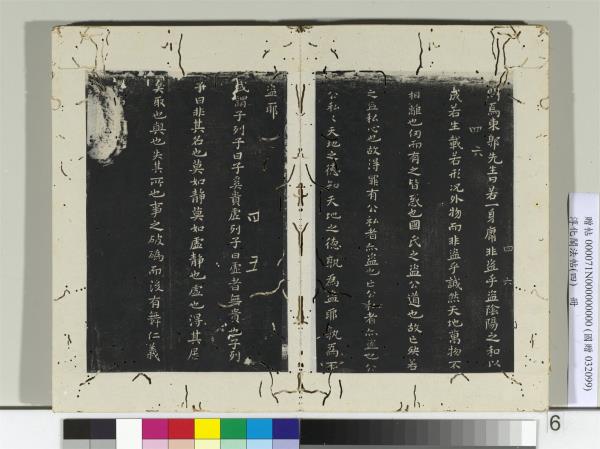 以爲東郭先生曰若一身庸非盜乎盜陰陽之和以
成若生載若形況外物而非盜乎誠然天地萬物不
相離也仞而有之皆惑也國氏之盜公道也故亡殃若
之盜私心也故得罪有公私者亦盜也亡公私者亦盜也公
公私私天地之德知天地之德孰爲盜耶孰爲不
盜耶
或謂子列子曰子奚貴虛列子曰虛者無貴也子列
子曰非其名也莫如靜莫如虛靜也虛也得其居
矣取也與也失其所也事之破䃣而後有舞仁義
四 六
四 六
四 五
贈帖 000071N000000000 (國贈 032099)
淳化閣法帖(四) 冊
6